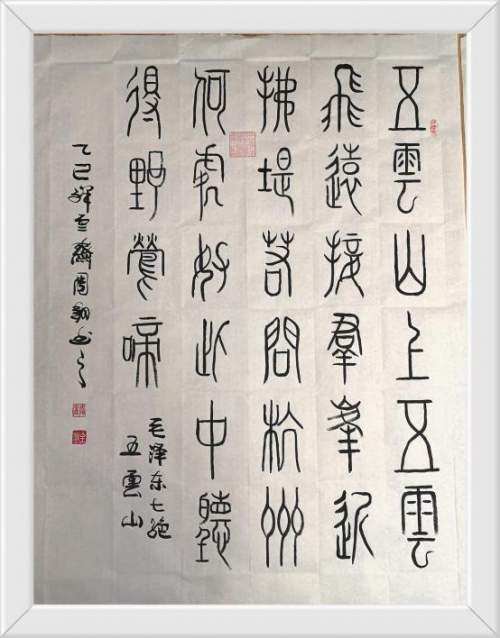 五雲山上五雲
飛遠接羣峯近
拂堤若問杭州
何處好此中聽
得野鶯啼
毛泽东七絶
五雲山
乙巳雲齋周翔書